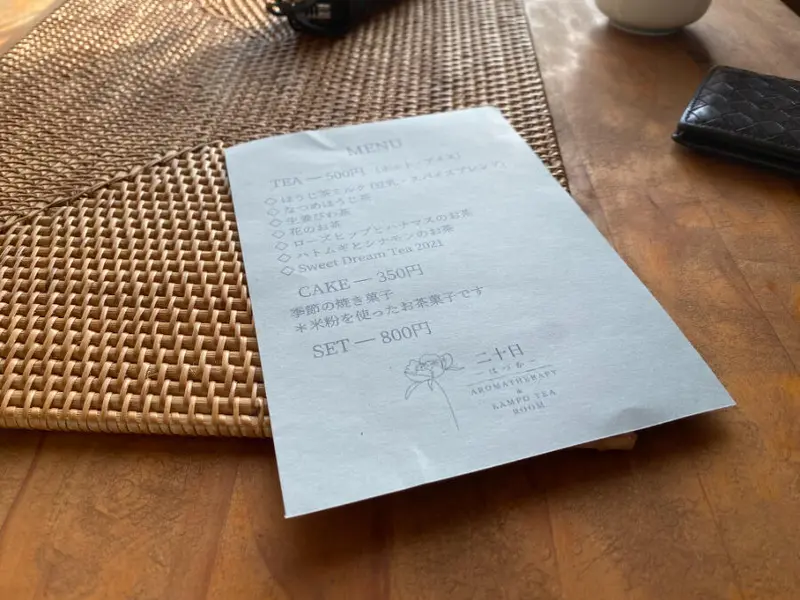 MENU
TEA — 500円 (ホット・アイス)
◇ ほうじ茶ミルク(豆乳・スパイスブレンド)
◇ なつめほうじ茶
◇ 生姜びわ茶
◇ 花のお茶
◇ ローズヒップとハナマスのお茶
◇ ハトムギとシナモンのお茶
◇ Sweet Dream Tea 2021
CAKE — 350円
季節の焼き菓子
*米粉を使ったお茶菓子です
SET — 800円
二十日
－はつか－
AROMATHERAPY
&
KAMPO TEA
ROOM